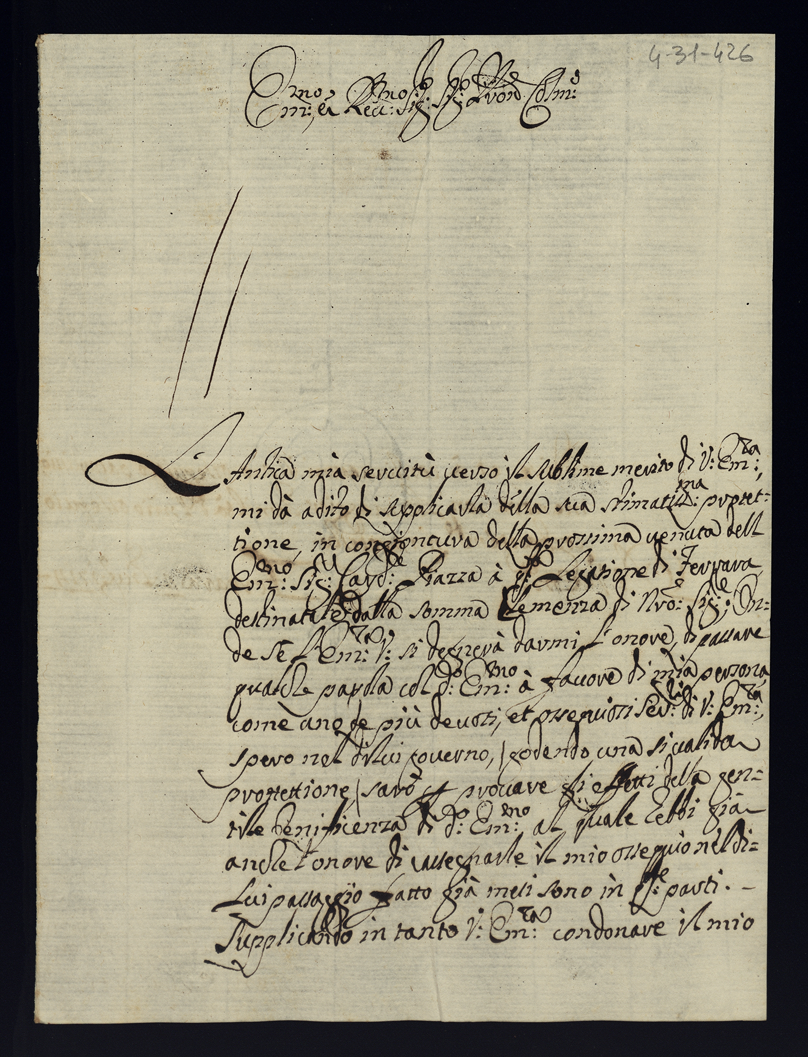 4-31-426
Em:mo, et Reu:mo Sig:r Sig:r Pron Col:mo
L'Antica mia seruitù uerso il sublime merito di V: Em:za,
mi dà adito di supplicarla della sua stimatis:ma protet=
tione, in congiontura della prossima uenuta dell
Em:mo Sig:r Card:le Piazza à q:sta Legatione di Ferrara,
destinatale dalla somma Clemenza di Nro: Sig:re; On=
de se l'Em:za V: si degnerà darmi l'onore, di passare
qualche parola col d:o Em:mo à fauore di mia persona,
come uno de più deuoti, et ossequiosi Seru:ri di V: Em:za,
spero nel di lui gouerno, (godendo una si ualida
protettione) sarò p prouare gli effetti della gen=
tile benificenza di d:o Em:mo al quale hebbi già
anche l'onore di rassegnarle il mio ossequio nel di=
Lui passaggio fatto già mesi sono in q:ste parti. -
Supplicando in tanto V: Em:za condonare il mio